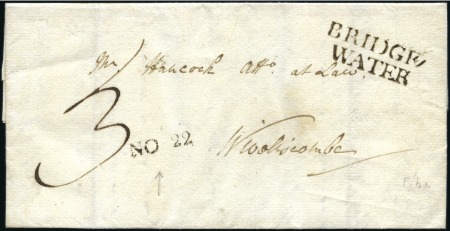 BRIDGE/
WATER
Mr Hancock Atto. at Law
3
NO 22
Wiveliscombe